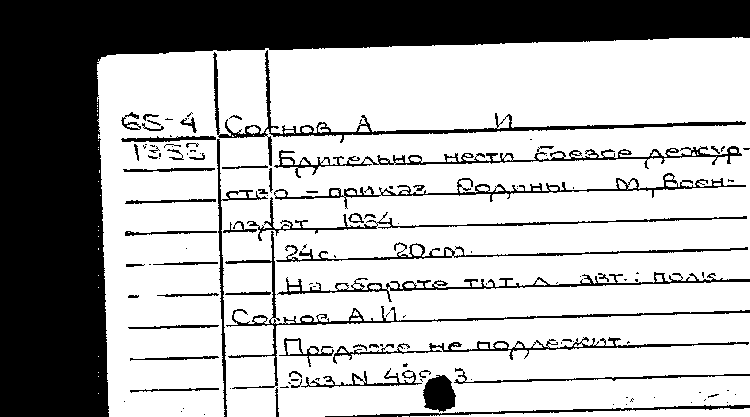 65-4 Соснов, А И
Бдительно нести боевое дежур-
ство - приказ Родины. М., Воен-
издат, 1964
24с. 20cm.
На обороте тит. л. авт.: полк.
Соснов А.И.
Продаже не подлежит.
Экз. N